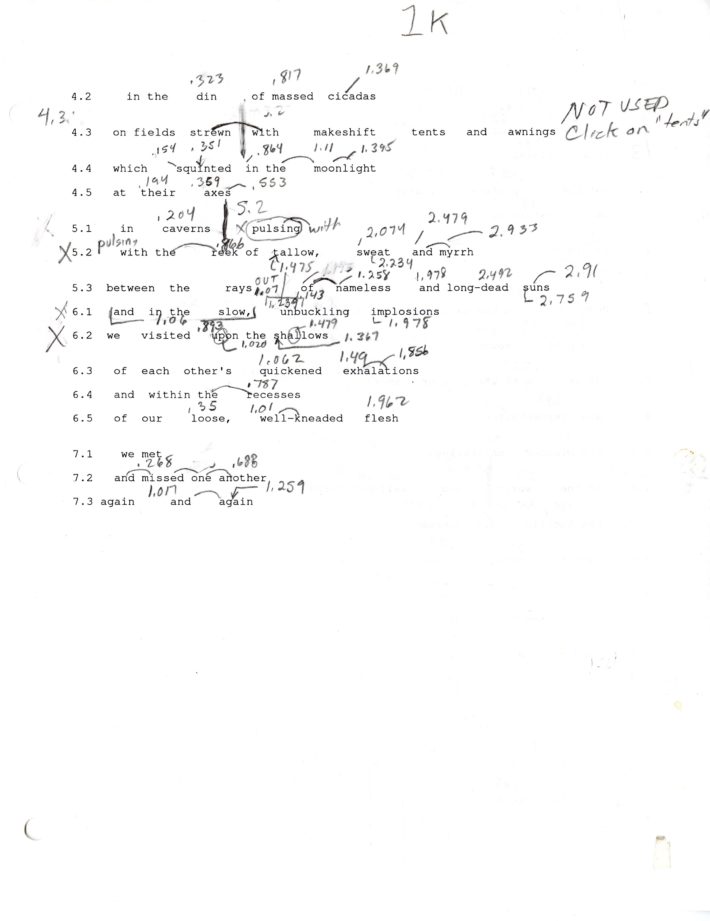 1K
.323 .817 1.369
4.2 in the din of massed cicadas
4.3 NOT USED
4.3 on fields strewn with makeshift tents and awnings Click on "tents"
.154 .351 .864 1.11 1.395
4.4 which squinted in the moonlight
.194 .359 .553
4.5 at their axes
.204 5.2
5.1 in caverns X pulsing with 2.074 2.479 2.933
X 5.2 pulsing with the reek of tallow, sweat and myrrh
.866 1.475 2.234
OUT 1.258 1.978 2.492 2.91
5.3 between the rays 1.07 of nameless and long-dead suns
1.239 1.143 2.759
X 6.1 and in the slow, unbuckling implosions
1.06 .893 1.479 1.978
X 6.2 we visited upon the shallows 1.367
1.020
1.062 1.49 1.856
6.3 of each other's quickened exhalations
.787
6.4 and within the recesses
.35 1.01 1.962
6.5 of our loose, well-kneaded flesh
7.1 we met
.268 .688
7.2 and missed one another
1.017 1.259
7.3 again and again